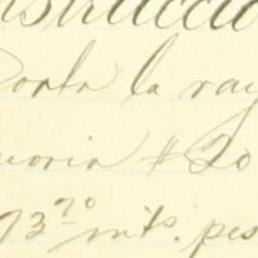 nstruccio
Corta la ray
uoria # 20
73⁷⁰ mts. pes